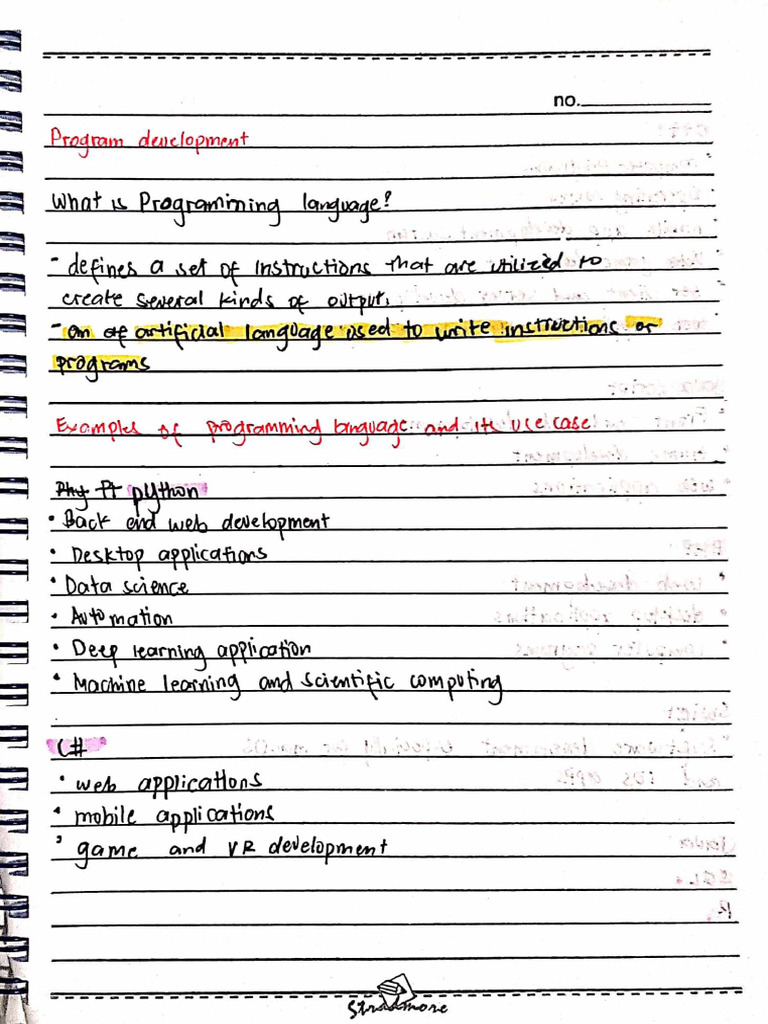 no.
Program development
What is Programming language?
- defines a set of instructions that are utilized to
create several kinds of output.
- an of artificial language used to write instructions or
programs
Examples of programming language and its use case
Phy Pt python
• Back end web development
• Desktop applications
• Data science
• Automation
• Deep learning application
• Machine learning and scientific computing
C#
• web applications
• mobile applications
• game and VR development
Stradmore